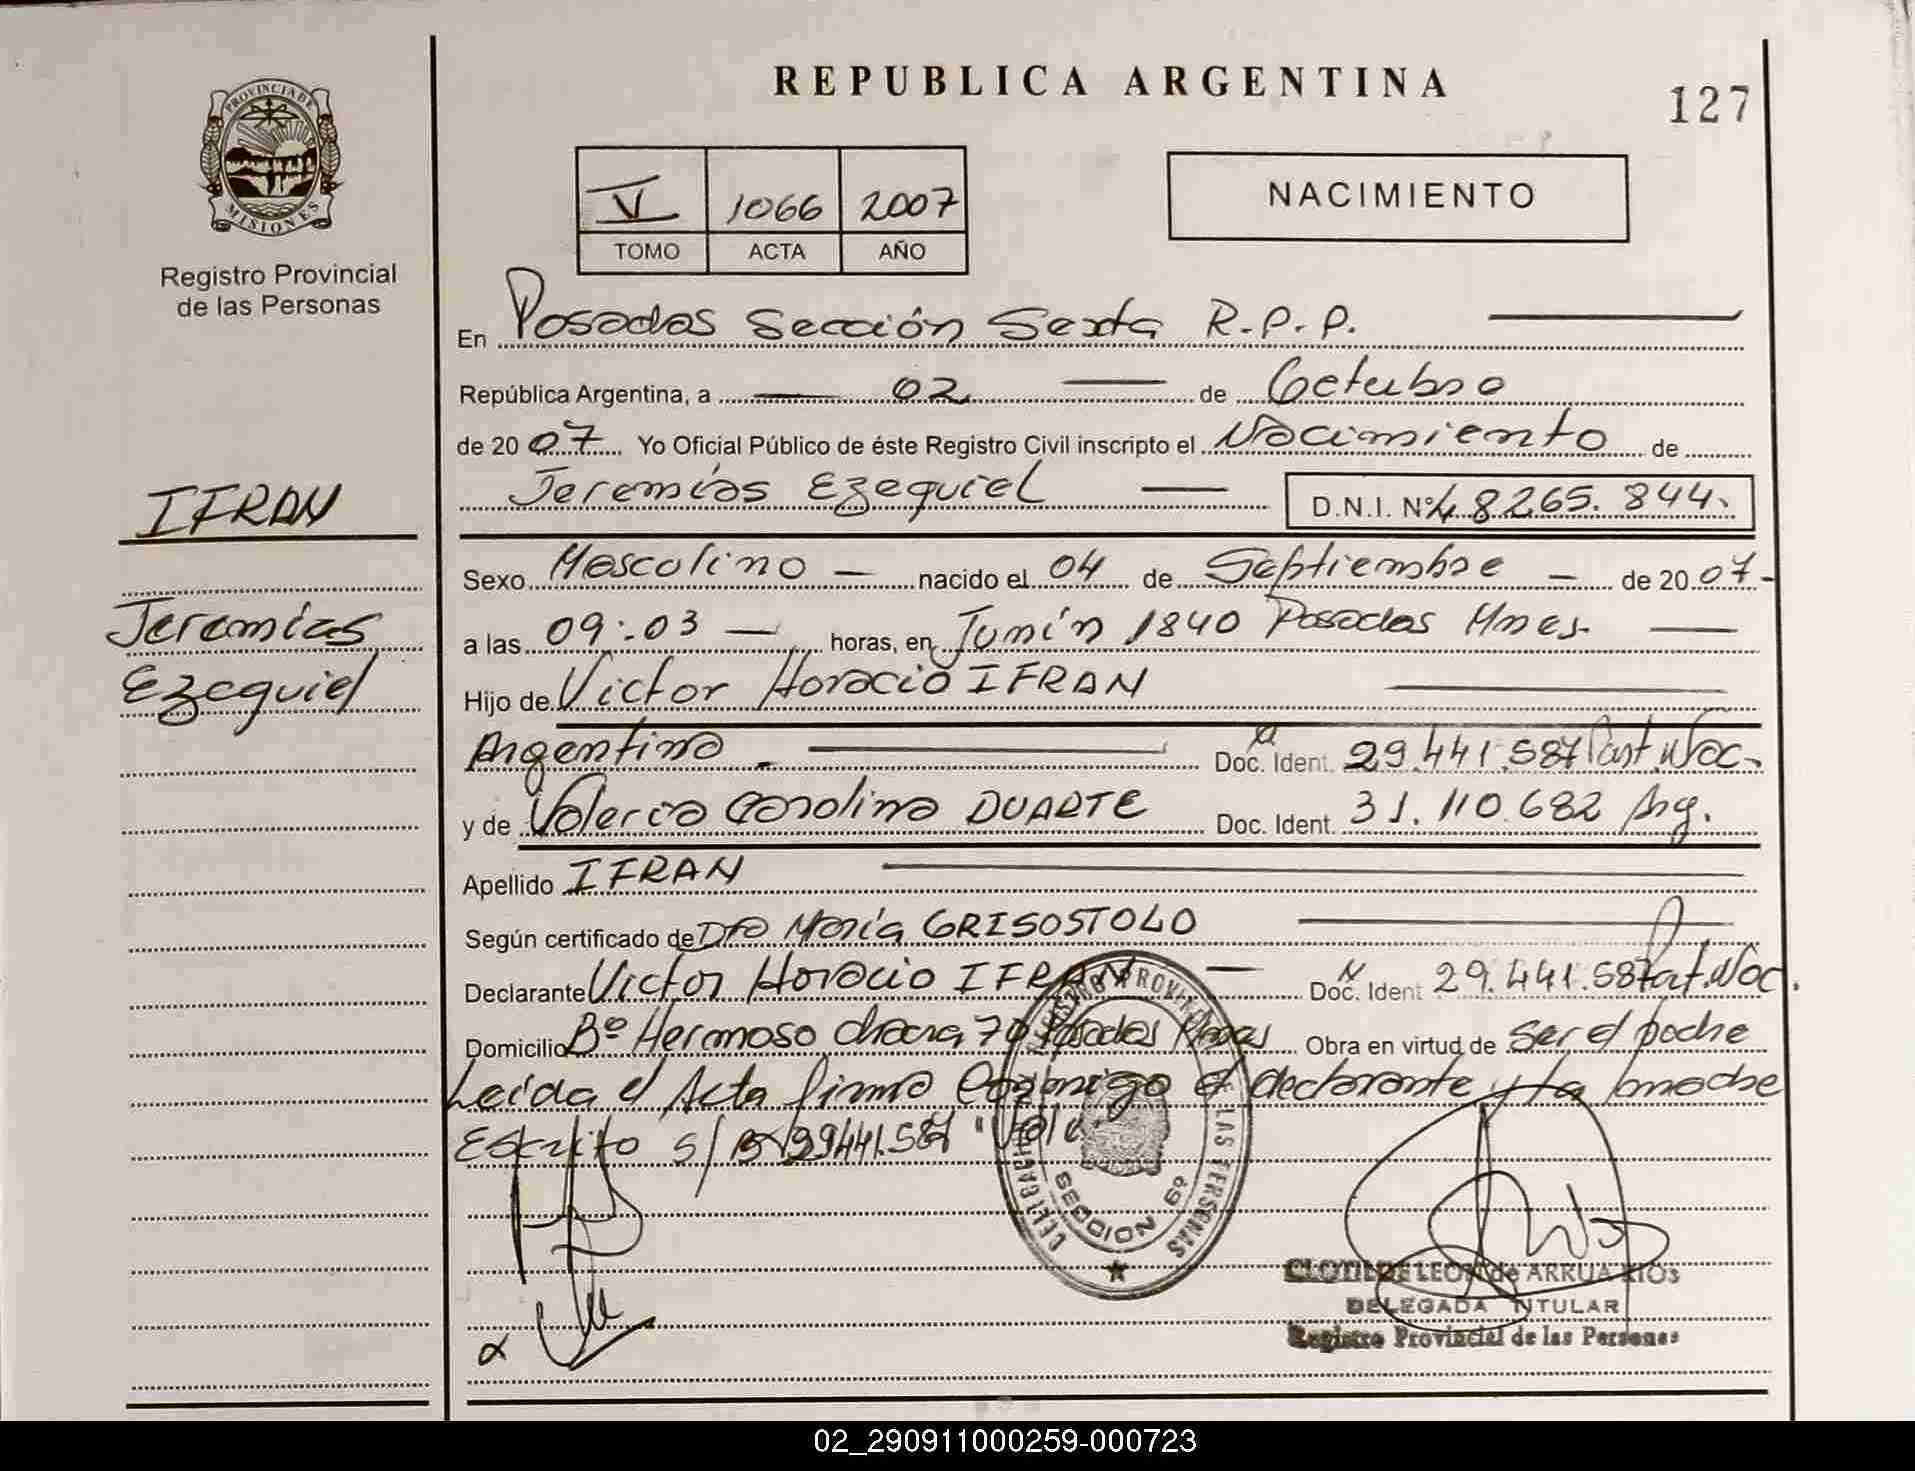 REPUBLICA ARGENTINA
127
PROVINCIA DE
MISIONES
Registro Provincial
de las Personas
V 1066 2007
TOMO ACTA AÑO
NACIMIENTO
En Posadas Sección Sexta R.P.P.
República Argentina, a 02 de Octubre
de 2007 Yo Oficial Público de éste Registro Civil inscripto el Nacimiento de
Jeremías Ezequiel D.N.I. Nº 48265.844.
IFRAN
Jeremías
Ezequiel
Sexo Masculino nacido el 04 de Septiembre de 2007
a las 09:03 horas, en Junín 1840 Posadas Mnes.
Hijo de Victor Horacio IFRAN
Argentina Doc. Ident. 29.441.587
y de Valeria Carolina DUARTE Doc. Ident. 31.110.682 Arg.
Apellido IFRAN
Según certificado de Dra María GRISOSTOLO
Declarante Victor Horacio IFRAN Doc. Ident 29.441.587
Domicilio Bº Hermoso chacra Posadas Mnes Obra en virtud de ser el padre
Leída el Acta firma conmigo el declarante y la madre
Escrito s/ 29441.587 "Vale"
REGISTRO PROVINCIAL DE LAS PERSONAS
SECCION 6º
CLOTILDE LEON de ARRUA RIOS
DELEGADA TITULAR
Registro Provincial de las Personas
02_290911000259-000723